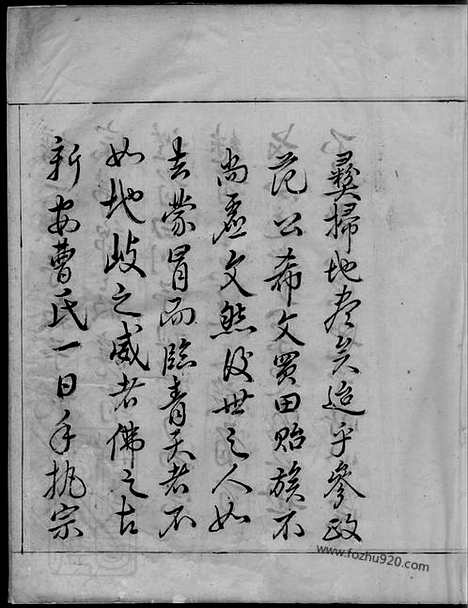 彛掃地盡矣迨乎參政
范公希文買田貽族不
尚虛文然後世之人如
去蒙冒而臨青天者不
如地歧之威者佛之古
新安曹氏一日手執宗
www.fozhu920.com